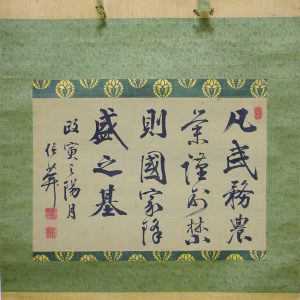 凡民務農
業謹禁
則國家隆
盛之基
寅之陽月